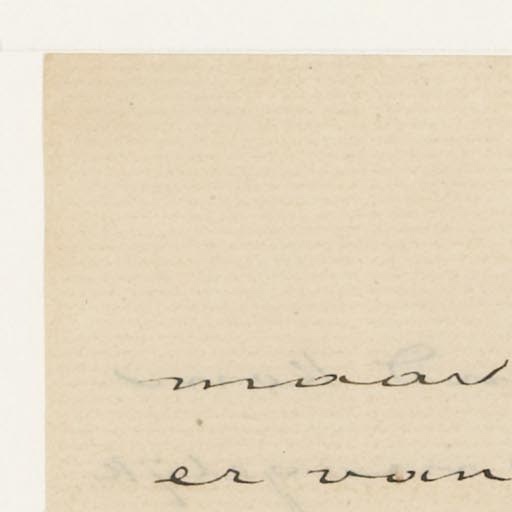 maar
er van